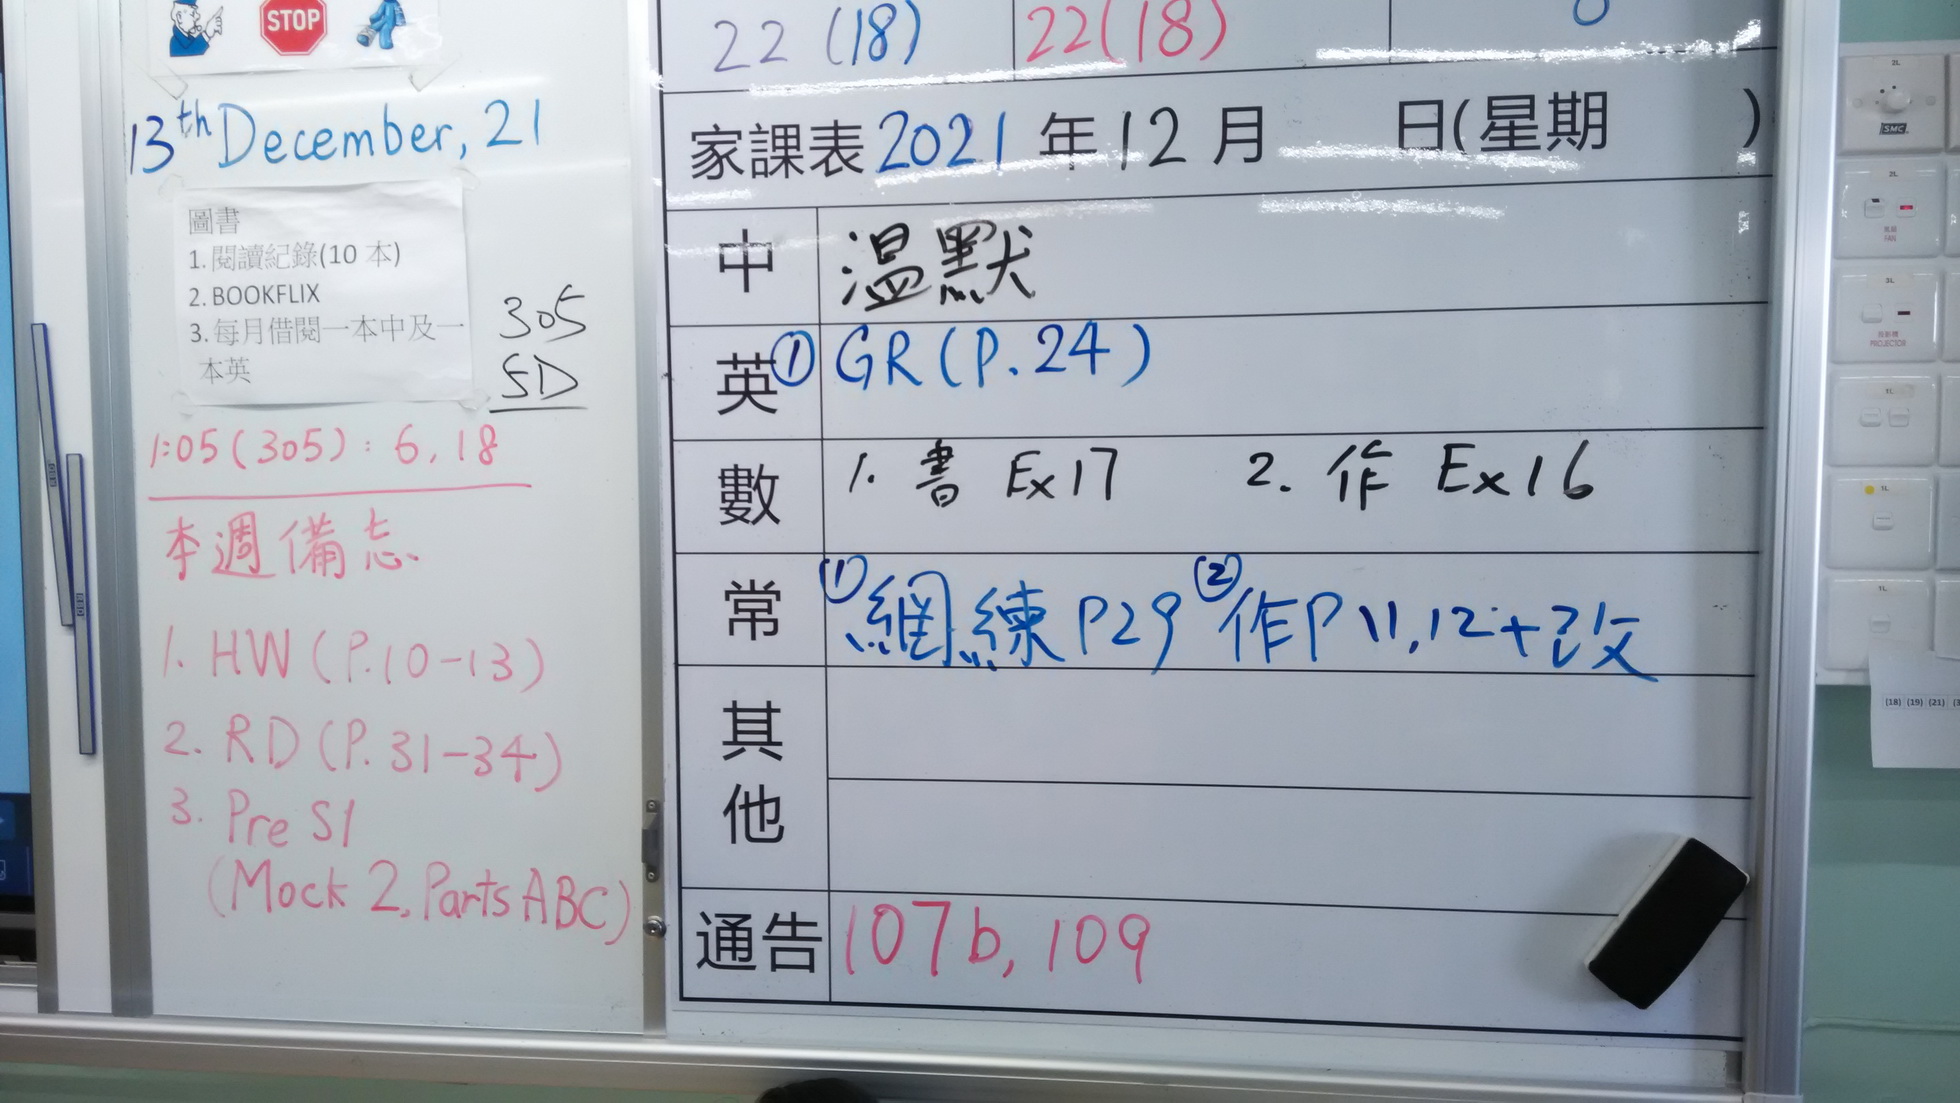 STOP
13th December, 21
圖書
1. 閱讀紀錄(10 本)
2. BOOKFLIX
3. 每月借閱一本中及一
本英
305
5D
1:05 (305) : 6, 18
本週備忘
1. HW (P.10-13)
2. RD (P. 31-34)
3. Pre S1
(Mock 2, Parts ABC)
22 (18) 22 (18)
家課表 2021 年 12 月 日(星期 )
中 温默
英 ① GR (P. 24)
數 1. 書 Ex 17 2. 作 Ex 16
常 ① 網練 P29 ② 作 P 11, 12 + 改
其他
通告 107b, 109
2L
SMC
2L
FAN
3L
PROJECTOR
1L
1L
1L
(18) (19) (21)